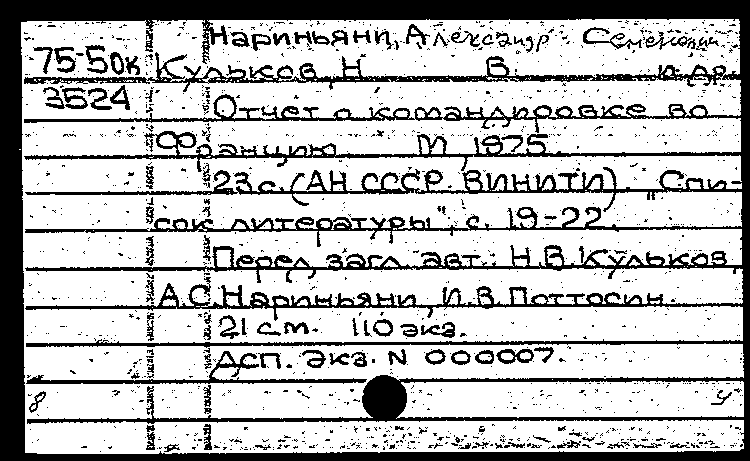 Нариньяни, Александр Семенович
75-50к Кульков, Н В. и др.
3524 Отчет о командировке во
Францию М, 1975.
23 с. (АН СССР. ВИНИТИ). "Спи-
сок литературы", с. 19-22.
Перед загл. авт.: Н.В. Кульков,
А.С. Нариньяни, И.В. Поттосин.
21 см. 110 экз.
Дсп. Экз. N 000007.
8 у